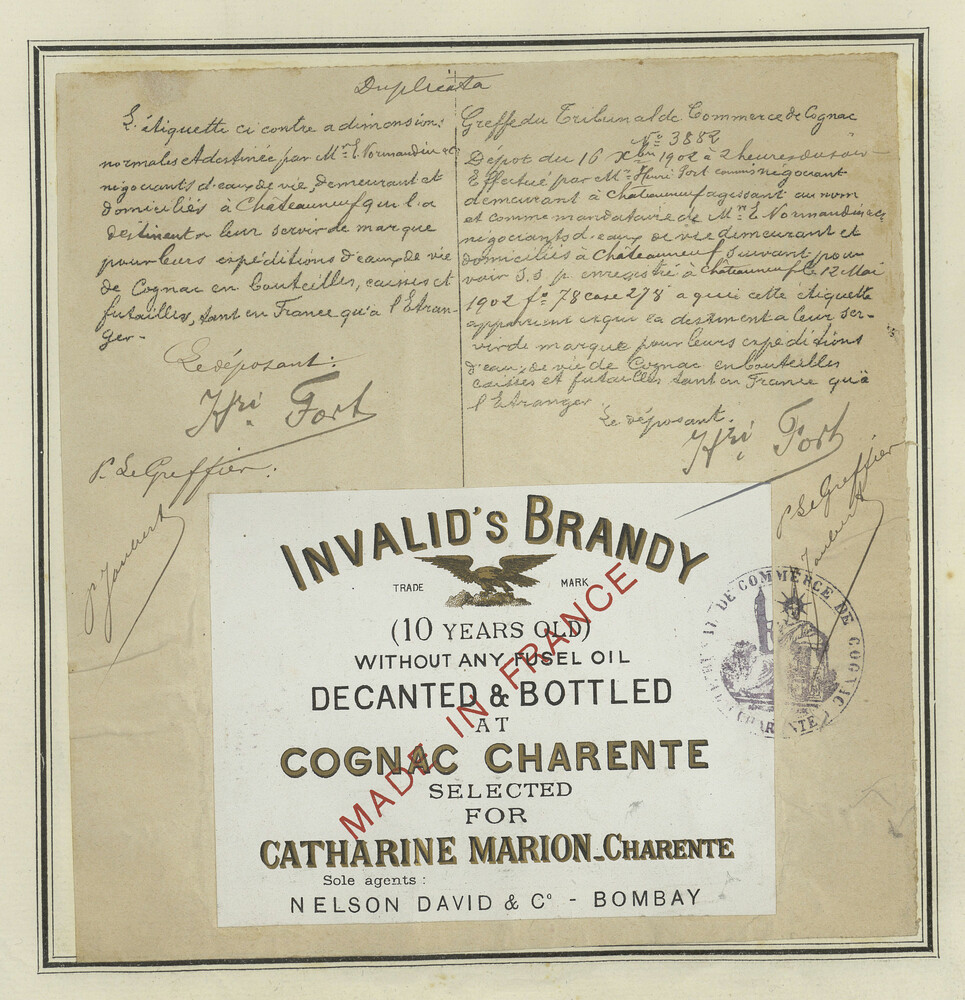 Duplicata
L'étiquette ci contre a dimensions
normales et destinée par Mr. E. Normandin & C
négociants d'eaux de vie, demeurant et
domiciliés à Châteauneuf qui la
destinent a leur servir de marque
pour leurs expéditions d'eaux de vie
de Cognac en bouteilles, caisses et
futailles, tant en France qu'à l'Etran-
ger-
Le déposant:
Hri Fort
P. Le Greffier.
P. Jaubert
Greffe du Tribunal de Commerce de Cognac
No 3882
Dépot du 16 Xbre 1902 à 2 heures du soir
Effectué par Mr. Henri Fort commis négociant
demeurant à Châteauneuf agissant au nom
et comme mandataire de Mr. E. Normandin & C
négociants d'eaux de vie demeurant et
domiciliés à Châteauneuf suivant pou-
voir S.S.p. enregistré à Châteauneuf le 12 Mai
1902 fo 78 case 278 a qui cette étiquette
appartient et qui la destinent a leur ser-
vir de marque pour leurs expéditions
d'eaux de vie de Cognac en bouteilles
caisses et futailles tant en France qu'à
l'Etranger
Le déposant.
Hri Fort
P Le Greffier
Jaubert
INVALID'S BRANDY
TRADE MARK
(10 YEARS OLD)
WITHOUT ANY FUSEL OIL
DECANTED & BOTTLED
AT
COGNAC CHARENTE
SELECTED
FOR
CATHARINE MARION-CHARENTE
Sole agents:
NELSON DAVID & Co - BOMBAY
MADE IN FRANCE
DE COMMERCE DE COGNAC
CHARENTE